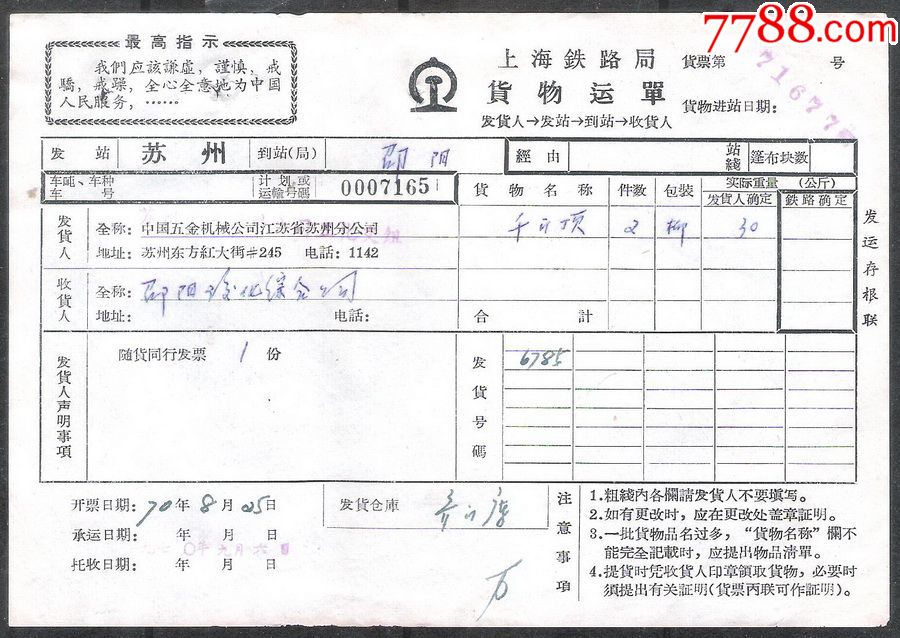 7788.com
最高指示
我們应該謙虛，謹慎，戒
驕，戒躁，全心全意地为中國
人民服务，……
上海鉄路局
貨物运單
发貨人→发站→到站→收貨人
貨票第 71677 号
貨物进站日期:
发站 苏州 到站(局) 邵阳 經由 站綫 篷布块数
车吨、车种
车号
计划或
运輸号碼
0007165
貨物名称 件数 包装 实际重量 (公斤)
发貨人确定 鉄路确定
发貨人
全称: 中国五金机械公司江苏省苏州分公司
地址: 苏州东方紅大街#245 电話: 1142
千斤顶 2 柳 30
收貨人
全称: 邵阳 综合公司
地址: 电話:
合計
发运存根联
发貨人声明事項
随貨同行发票 1 份
发貨号碼
6785
开票日期: 70年8月25日
承运日期: 年 月 日
托收日期: 年 月 日
发貨仓庫
注意事項
1.粗綫內各欄請发貨人不要填写。
2.如有更改时，应在更改处盖章証明。
3.一批貨物品名过多，“貨物名称”欄不
能完全記載时，应提出物品清單。
4.提貨时凭收貨人印章領取貨物，必要时
須提出有关証明(貨票丙联可作証明)。